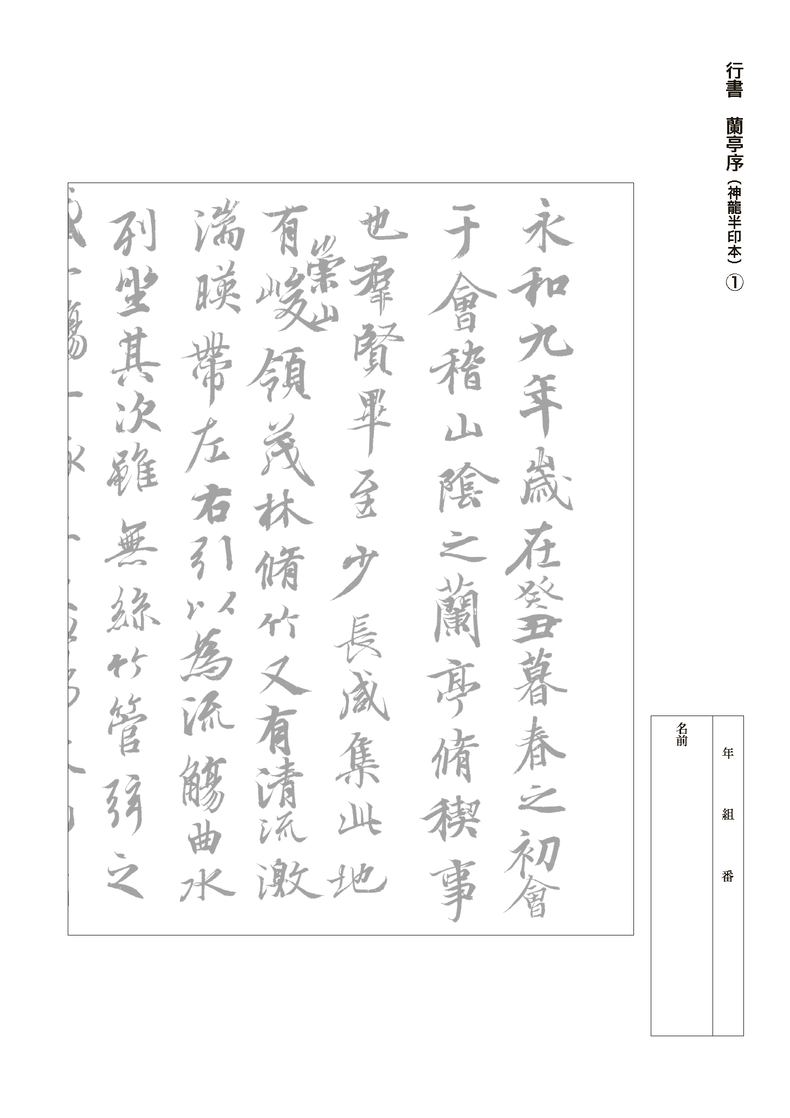 行書 蘭亭序(神龍半印本)①
永和九年歲在癸丑暮春之初會
于會稽山陰之蘭亭脩稧事
也羣賢畢至少長咸集此地
崇山
有峻領茂林脩竹又有清流激
湍暎帶左右引以為流觴曲水
列坐其次雖無絲竹管弦之
年 組 番
名前